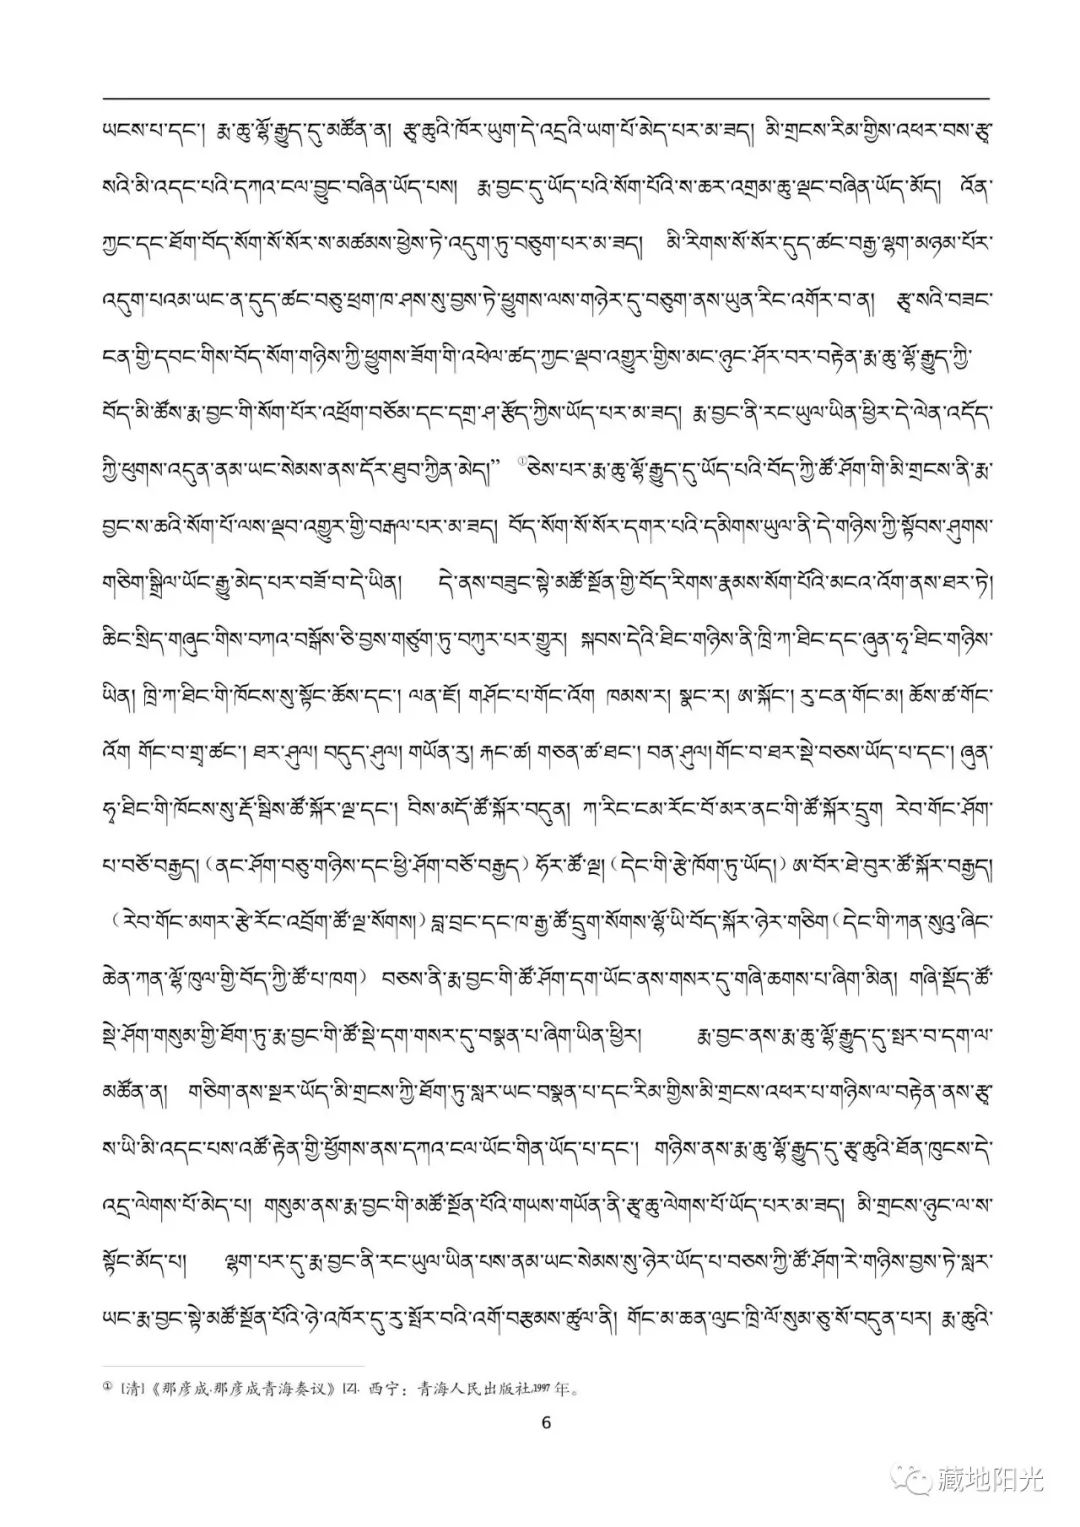 ཡངས་པ་དང་། རྨ་ཆུ་ལྷོ་རྒྱུད་དུ་མཚོན་ན། རྩྭ་ཆུའི་ཁོར་ཡུག་དེ་འདྲའི་ཡག་པོ་མེད་པར་མ་ཟད། མི་གྲངས་རིམ་གྱིས་འཕར་བས་རྩྭ་
སའི་མི་འདང་པའི་དཀའ་ངལ་བྱུང་བཞིན་ཡོད་པས། རྨ་བྱང་དུ་ཡོད་པའི་སོག་པོའི་ས་ཆར་འགྲམ་ཆུ་ལྡང་བཞིན་ཡོད་མོད། འོན་
ཀྱང་དང་ཐོག་བོད་སོག་སོ་སོར་ས་མཚམས་ཕྱེས་ཏེ་འདུག་ཏུ་བཅུག་པར་མ་ཟད། མི་རིགས་སོ་སོར་དུད་ཚང་བརྒྱ་ལྷག་མཉམ་པོར་
འདུག་པའམ་ཡང་ན་དུད་ཚང་བཅུ་ཕྲག་ཁ་ཤས་སུ་བྱས་ཏེ་ཕྱུགས་ལས་གཉེར་དུ་བཅུག་ནས་ཡུན་རིང་འགོར་བ་ན། རྩྭ་སའི་བཟང་
ངན་གྱི་དབང་གིས་བོད་སོག་གཉིས་ཀྱི་ཕྱུགས་ཟོག་གི་འཕེལ་ཚད་ཀྱང་ལྡབ་འགྱུར་གྱིས་མང་ཉུང་ཤོར་བར་བརྟེན་རྨ་ཆུ་ལྷོ་རྒྱུད་ཀྱི་
བོད་མི་ཚོས་རྨ་བྱང་གི་སོག་པོར་འཕྲོག་བཅོམ་དང་དགྲ་ཤ་རྩོད་ཀྱིས་ཡོད་པར་མ་ཟད། རྨ་བྱང་ནི་རང་ཡུལ་ཡིན་ཕྱིར་དེ་ལེན་འདོད་
ཀྱི་ཕུགས་འདུན་ནམ་ཡང་སེམས་ནས་དོར་ཐུབ་ཀྱིན་མེད།” ①ཅེས་པར་རྨ་ཆུ་ལྷོ་རྒྱུད་དུ་ཡོད་པའི་བོད་ཀྱི་ཚོ་ཤོག་གི་མི་གྲངས་ནི་རྨ་
བྱང་ས་ཆའི་སོག་པོ་ལས་ལྡབ་འགྱུར་གྱི་བརྒལ་པར་མ་ཟད། བོད་སོག་སོ་སོར་དགར་པའི་དམིགས་ཡུལ་ནི་དེ་གཉིས་ཀྱི་སྟོབས་ཤུགས་
གཅིག་སྒྲིལ་ཡོང་རྒྱུ་མེད་པར་བཟོ་བ་དེ་ཡིན། དེ་ནས་བཟུང་སྟེ་མཚོ་སྔོན་གྱི་བོད་རིགས་རྣམས་སོག་པོའི་མངའ་འོག་ནས་ཐར་ཏེ།
ཆིང་སྲིད་གཞུང་གིས་བཀའ་བསྒོས་ཅི་བྱས་གཙུག་ཏུ་བཀུར་པར་གྱུར། སྐབས་དེའི་ཐིང་གཉིས་ནི་ཁྲི་ཀ་ཐིང་དང་ཞུན་ཧྭ་ཐིང་གཉིས་
ཡིན། ཁྲི་ཀ་ཐིང་གི་ཁོངས་སུ་སྟོང་ཆོས་དང་། ལན་ཇོ། གཤོང་པ་གོང་འོག ཁམས་ར། སྣང་ར། ཨ་སྐོང་། རུ་ངན་གོང་མ། ཆོས་ཚ་གོང་
འོག གོང་བ་གྲྭ་ཚང་། ཐར་ཤུལ། བདུད་ཤུལ། གཡོན་རུ། རྐང་ཚ། གཅན་ཚ་ཐང་། བན་ཤུལ། གོང་བ་ཐར་སྡེ་བཅས་ཡོད་པ་དང་། ཞུན་
ཧྭ་ཐིང་གི་ཁོངས་སུ་རྡོ་སྦིས་ཚོ་སྐོར་ལྔ་དང་། བིས་མདོ་ཚོ་སྐོར་བདུན། ཀ་རིང་ངམ་རོང་བོ་མར་ནང་གི་ཚོ་སྐོར་དྲུག རེབ་གོང་ཤོག་
པ་བཅོ་བརྒྱད། (ནང་ཤོག་བཅུ་གཉིས་དང་ཕྱི་ཤོག་བཅོ་བརྒྱད) ཧོར་ཚོ་ལྔ། (དེང་གི་རྩེ་ཁོག་ཏུ་ཡོད།) ཨ་བོར་ཐེ་བུར་ཚོ་སྐོར་བརྒྱད།
(རེབ་གོང་མགར་རྩེ་རོང་འབྲོག་ཚོ་ལྔ་སོགས།) བླ་བྲང་དང་ཁ་རྒྱ་ཚོ་དྲུག་སོགས་ལྷོ་ཡི་བོད་སྐོར་ཉེར་གཅིག (དེང་གི་ཀན་སུའུ་ཞིང་
ཆེན་ཀན་ལྷོ་ཁུལ་གྱི་བོད་ཀྱི་ཚོ་པ་ཁག) བཅས་ནི་རྨ་བྱང་གི་ཚོ་ཤོག་དག་ཡོང་ནས་གསར་དུ་གཞི་ཆགས་པ་ཞིག་མིན། གཞི་སྡོད་ཚོ་
སྡེ་ཤོག་གསུམ་གྱི་ཐོག་ཏུ་རྨ་བྱང་གི་ཚོ་སྡེ་དག་གསར་དུ་བསྣན་པ་ཞིག་ཡིན་ཕྱིར། རྨ་བྱང་ནས་རྨ་ཆུ་ལྷོ་རྒྱུད་དུ་སྤར་བ་དག་ལ་
མཚོན་ན། གཅིག་ནས་སྔར་ཡོད་མི་གྲངས་ཀྱི་ཐོག་ཏུ་སླར་ཡང་བསྣན་པ་དང་རིམ་གྱིས་མི་གྲངས་འཕར་པ་གཉིས་ལ་བརྟེན་ནས་རྩྭ་
ས་ཡི་མི་འདང་པས་འཚོ་རྟེན་གྱི་ཕྱོགས་ནས་དཀའ་ངལ་ཡོང་གིན་ཡོད་པ་དང་། གཉིས་ནས་རྨ་ཆུ་ལྷོ་རྒྱུད་དུ་རྩྭ་ཆུའི་ཐོན་ཁུངས་དེ་
འདྲ་ལེགས་པོ་མེད་པ། གསུམ་ནས་རྨ་བྱང་གི་མཚོ་སྔོན་པོའི་གཡས་གཡོན་ནི་རྩྭ་ཆུ་ལེགས་པོ་ཡོད་པར་མ་ཟད། མི་གྲངས་ཉུང་ལ་ས་
སྟོང་མོད་པ། ལྷག་པར་དུ་རྨ་བྱང་ནི་རང་ཡུལ་ཡིན་པས་ནམ་ཡང་སེམས་སུ་ཉེར་ཡོད་པ་བཅས་ཀྱི་ཚོ་ཤོག་རེ་གཉིས་བྱས་ཏེ་སླར་
ཡང་རྨ་བྱང་སྟེ་མཚོ་སྔོན་པོའི་ཉེ་འཁོར་དུ་རུ་སྤོར་བའི་འགོ་བརྩམས་ཚུལ་ནི། གོང་མ་ཆན་ལུང་ཁྲི་ལོ་སུམ་ཅུ་སོ་བདུན་པར། རྨ་ཆུའི་
① [清]《那彦成.那彦成青海奏议》[Z]. 西宁：青海人民出版社,1997 年。
6
藏地阳光